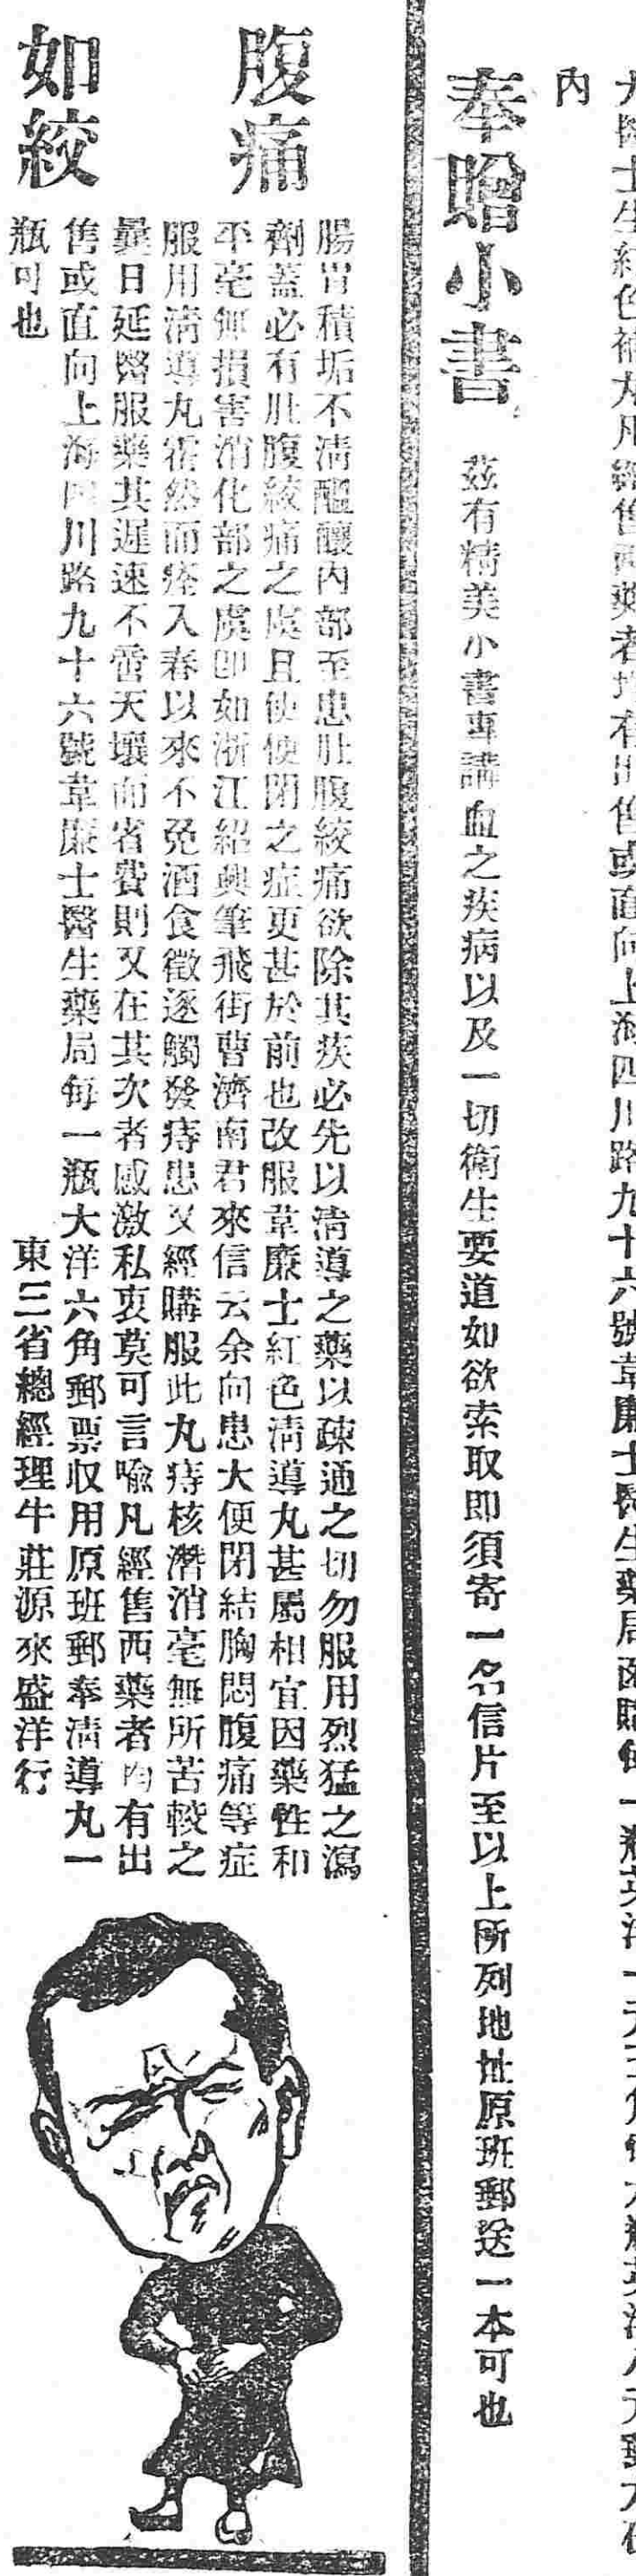 大醫士生紅色補丸凡經售西藥者均有出售或直向上海四川路九十六號韋廉士醫生藥局函購每一瓶英洋一元五角每六瓶英洋八元郵力在
內
奉贈小書
茲有精美小書專講血之疾病以及一切衛生要道如欲索取即須寄一名信片至以上所列地址原班郵送一本可也
腹痛
如絞
腸胃積垢不清醞釀內部至患肚腹絞痛欲除其疾必先以清導之藥以疎通之切勿服用烈猛之瀉
劑蓋必有肚腹絞痛之虞且使便閉之症更甚於前也改服韋廉士紅色清導丸甚屬相宜因藥性和
平毫無損害消化部之虞即如浙江紹興筆飛街曹濟南君來信云余向患大便閉結胸悶腹痛等症
服用清導丸霍然而痊入春以來不免酒食徵逐觸發痔患又經購服此丸痔核潛消毫無所苦較之
曩日延醫服藥其遲速不啻天壤而省費則又在其次者感激私衷莫可言喻凡經售西藥者均有出
售或直向上海四川路九十六號韋廉士醫生藥局每一瓶大洋六角郵票收用原班郵奉清導丸一
瓶可也
東三省總經理牛莊源來盛洋行